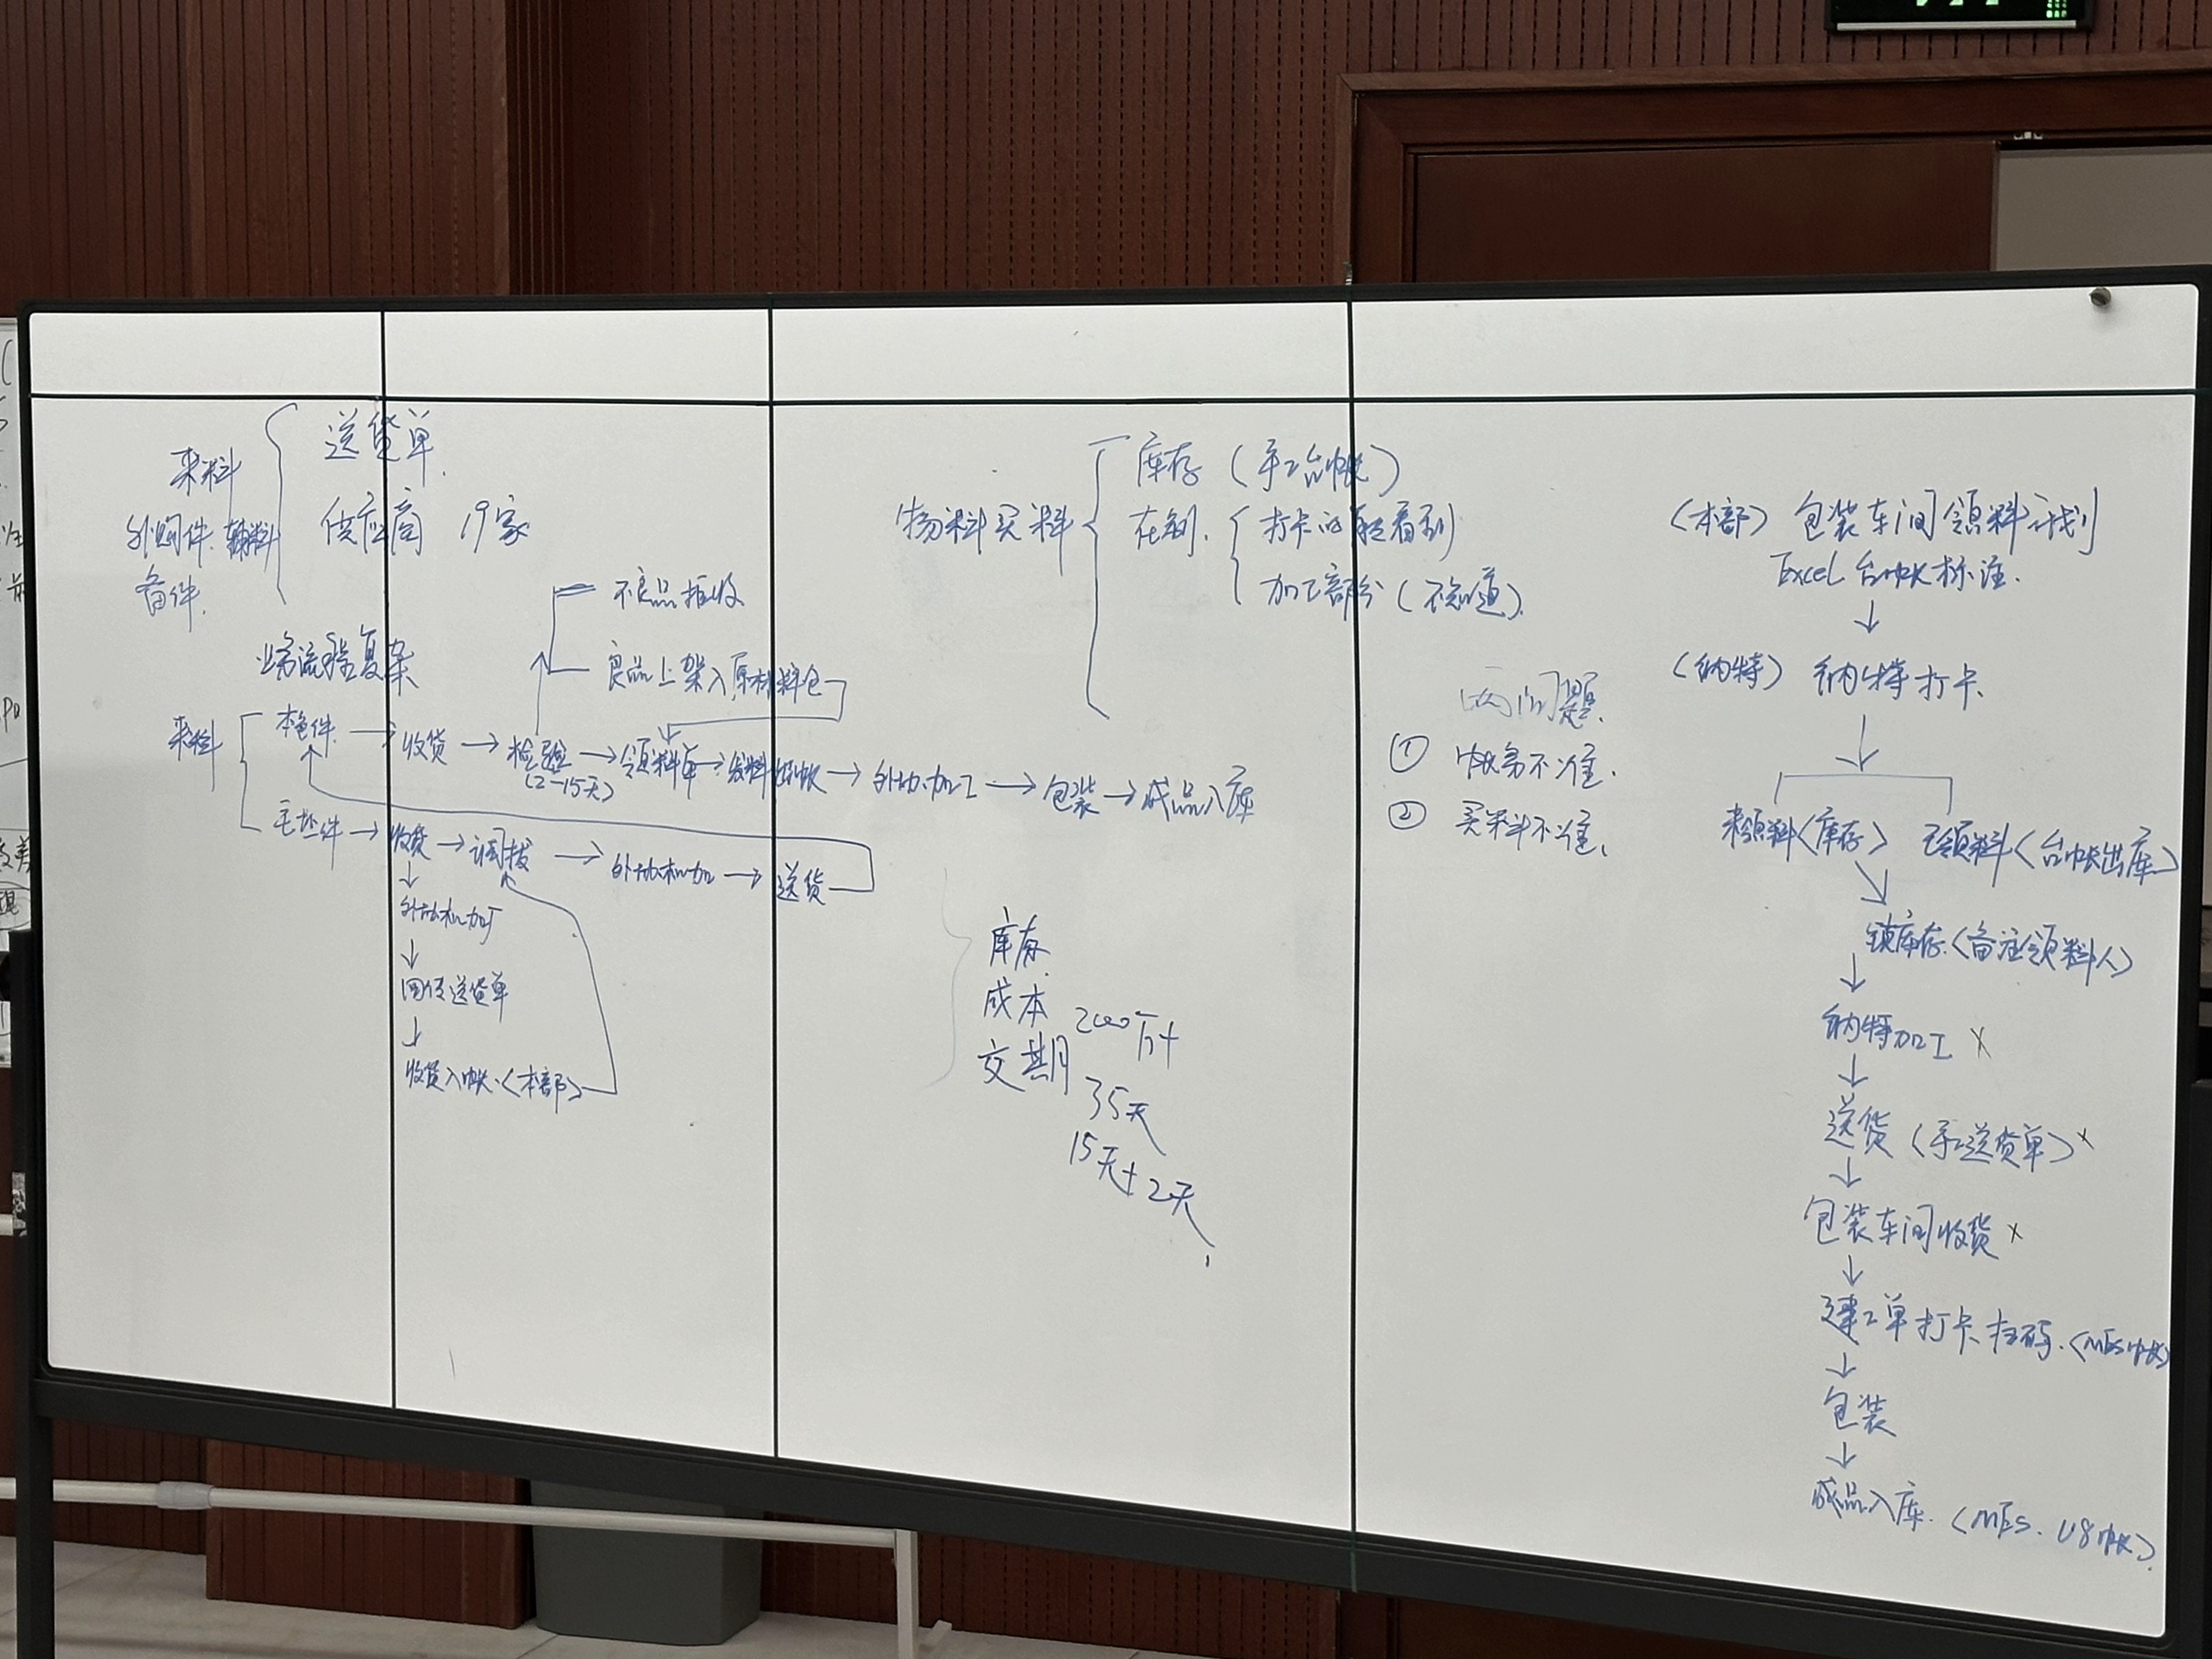 来料
外购件.辅料
备件.
送货单.
供应商 19家
业务流程复杂
不良品拒收
良品上架入原材料仓
来料
本色件 → 收货 → 检验 → 领料单 → 发料 → 外协加工 → 包装 → 成品入库
(2-15天)
毛坯件 → 收货 → 调拨 → 外协机加 → 送货
↓
外协机加厂
↓
回传送货单
↓
收货入帐.(本部)
物料买料
库存(手工台帐)
在制.
打卡的能看到
加工部分(不知道).
两问题.
① 帐务不准.
② 买料不准.
库存
成本
交期
2000万+
35天
15天+2天
(本部)包装车间领料计划
Excel台帐标注.
↓
(纳特) 纳特打卡
↓
未领料(库存) 已领料(台帐出库)
锁库存.(备注领料人)
↓
纳特加工 X
↓
送货(手工送货单) X
↓
包装车间收货 X
↓
建工单打卡.扫码.(MES帐)
↓
包装
↓
成品入库.(MES. U8帐).